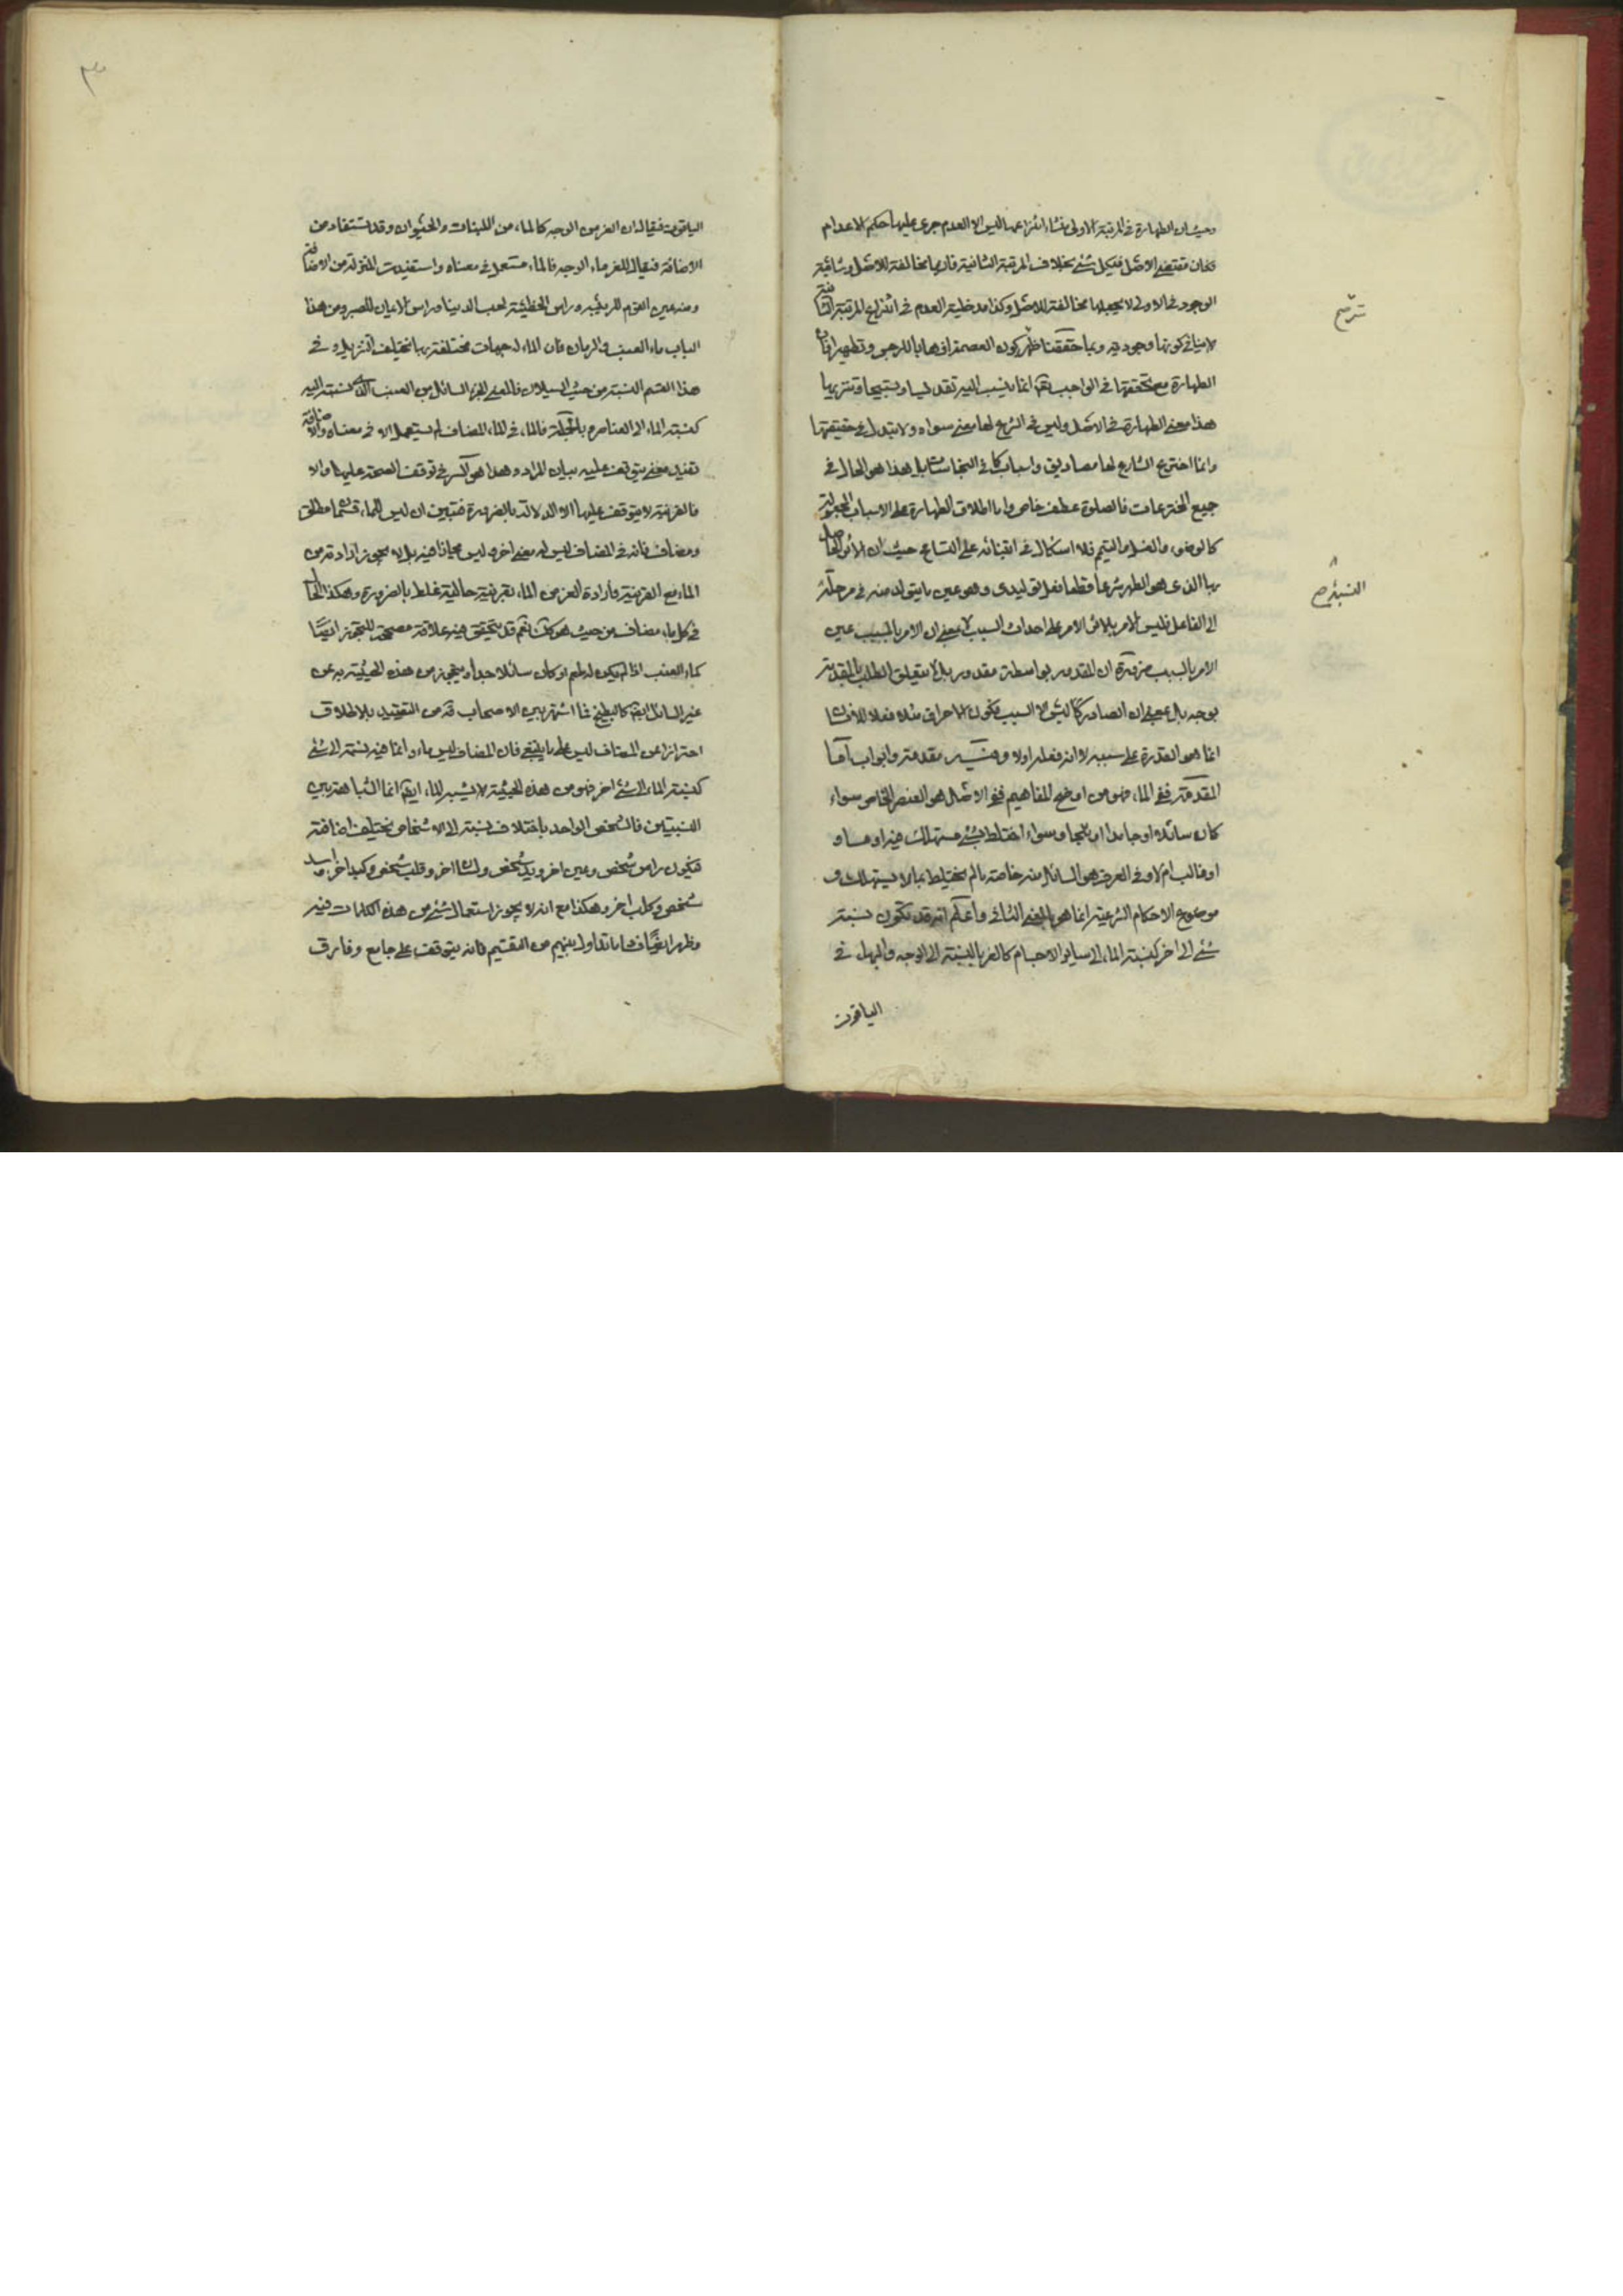 وحيث ان الطهارة في المرتبة الاولى منشأ انتزاعها ليس الا العدم جرى عليها حكم الاعدام
فكان مقتضى الاصل في كل شئ بخلاف المرتبة الثانية فانها مخالفة للاصل وشائبة
الوجود في الاولى لا يجعلها مخالفة للاصل وكذا مدخلية العدم في انتزاع المرتبة الثانية
لا ينافي كونها وجودية وبما حققنا ظهر كون العصمة اذهابا للرجس وتطهيرا وان
الطهارة مع تحققها في الواجب تعالى انما ينسب اليه تقديسا وتسبيحا وتنزيها
هذا معنى الطهارة في الاصل وليس في الشرع لها معنى سواه ولا تبدل في حقيقتها
وانما اخترع الشارع لها مصاديق واسبابا كما في النجاسات بل هذا هو الحال في
جميع المخترعات فالصلوة عطف خاص واما اطلاق الطهارة على الاسباب المجعولة
كالوضوء والغسل والتيمم فلا اشكال في ابتنائه على التسامح حيث ان الاثر الحاصل
بها الذى هو الطهر شرعا قطعا فعل توليدى وهو عين ما يتولد منه في مرحلة
الى الفاعل فليس الامر بالاثر الامر على احداث السبب لا بمعنى ان الامر بالمسبب عين
الامر بالسبب ضرورة ان المقدور بواسطة مقدور بل لا يتعلق الطلب بالمقدمة
بوجه بل بمعنى ان الصادر كما ليس الا السبب فكون الاحراق مثلا فعلا للانسان
انما هو القدرة على سببه لا انه فعله اولا وفيه مقدمة وابواب اما
المقدمة ففي الماء فهو من اوضح المفاهيم ففي الاصل هو العنصر الخاص سواء
كان سائلا او جامدا او ثلجا وسواء اختلط بشئ مستهلك فيه او مساو
او غالب ام لا وفي العرف هو السائل منه خاصة ما لم يختلط بما لا يستهلك و
موضوع الاحكام الشرعية انما هو بالمعنى الثاني واعلم انه قد يكون نسبة
شئ الى اخر كنسبة الماء الى سائر الاجسام كالغر بالنسبة الى الوجه والجهل في
الياقوت
ترشح
التسبيح
٣
الياقوت فيقال ان الغر من الوجه كالماء من النبات والحيوان وقد تستفاد من
الاضافة فيقال للغر ماء الوجه فالماء مستعمل في معناه واستفيدت المنزلة من الاضافة
ومنه عين القوم للرئيب وراس الخطيئة لحب الدنيا وراس الايمان للصبر ومن هذا
الباب ماء العنب والرمان فان الماء له جهات مختلفة بها تختلف التنزيل و في
هذا القسم النسبة من حيث السيلان فالمعنى الجزء السائل من العنب الذى نسبته اليه
كنسبة الماء الى العناصر وبالجملة فالماء في الماء المضاف لم يستعمل الا في معناه والاضافة
تفيد معنى يتوقف عليه بيان المراد وهذا هو السر في توقف الصحة عليها والا
فالقرينة لا يتوقف عليها الا الدلالة بالضرورة فتبين ان ليس للماء قسمان مطلق
ومضاف فانه في المضاف ليس له معنى اخر وليس مجازا فيه بل لا يجوز ارادته من
الماء مع القرينة وارادة الغر من الماء بقرينة حالية غلط بالضرورة وهكذا الحال
في كل ماء مضاف من حيث هو كك نعم قد يتحقق فيه علاقة مصححة للتجوز ايضا
كماء العنب اذا لم يكن له طعم او كان سائلا جدا ويتجوز من هذه الحيثية به عن
غير السائل ايضا كالبطيخ فما اشتهر بين الاصحاب قده من التقييد بالاطلاق
احترازا عن المضاف ليس على ما ينبغي فان المضاف ليس ماء وانما فيه نسبة الى شئ
كنسبة الماء الى شئ اخر فهو من هذه الحيثية لا يشبه الماء ايضا انما الشباهة بين
النسبتين فالشخص الواحد باختلاف نسبته الى الاشخاص يختلف اضافته
فيكون راس شخص وعين اخر ويد شخص ولسان اخر وقلب شخص وكبد اخر واسد
شخص وكلب اخر وهكذا مع انه لا يجوز استعمال شئ من هذه الكلمات فيه
وظهر ايضا فساد ما تداول بينهم من التقسيم فانه يتوقف على جامع وفارق